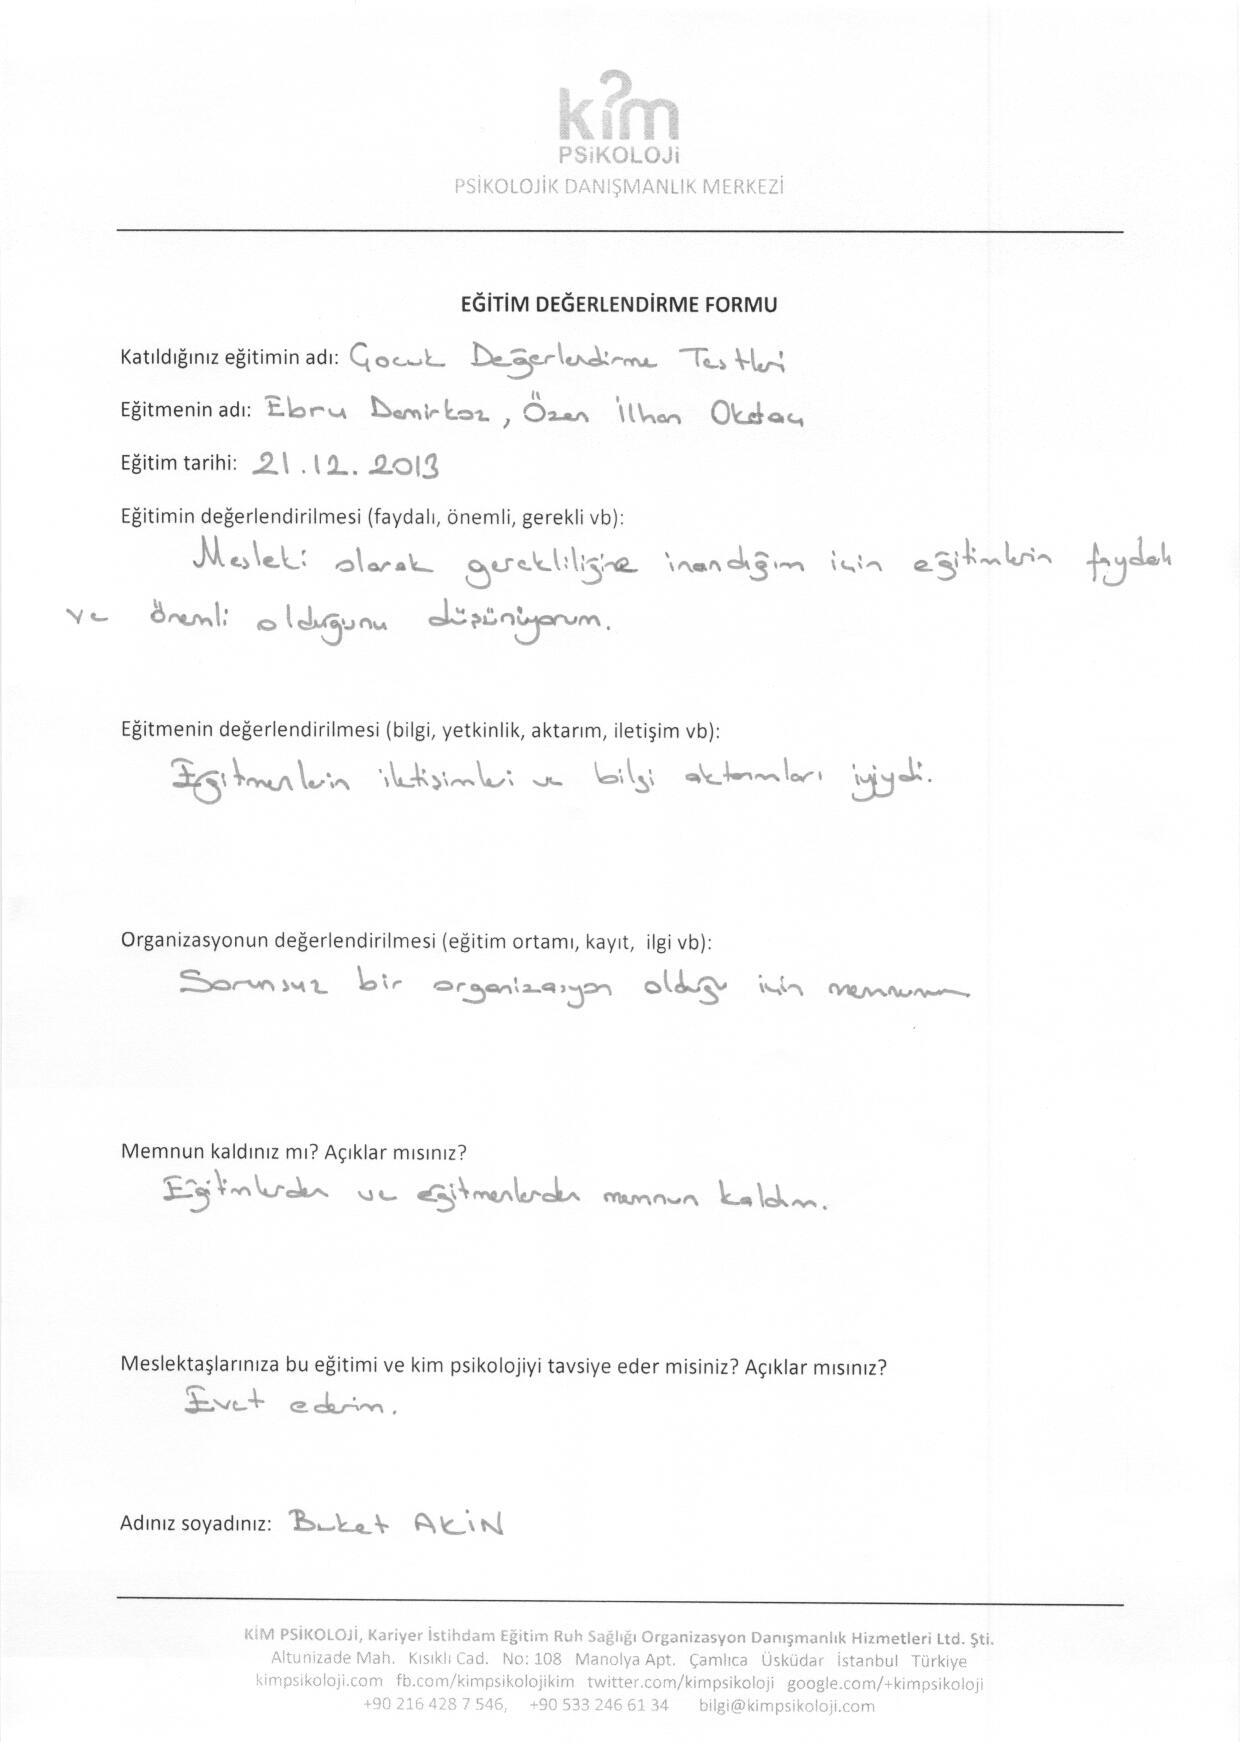 kim
PSiKOLOJi
PSİKOLOJİK DANIŞMANLIK MERKEZİ
EĞİTİM DEĞERLENDİRME FORMU
Katıldığınız eğitimin adı: Çocuk Değerlendirme Testleri
Eğitmenin adı: Ebru Demirkoz, Özen İlhan Okdaay
Eğitim tarihi: 21.12.2013
Eğitimin değerlendirilmesi (faydalı, önemli, gerekli vb):
Mesleki olarak gerekliliğine inandığım için eğitimlerin faydalı
ve önemli olduğunu düşünüyorum.
Eğitmenin değerlendirilmesi (bilgi, yetkinlik, aktarım, iletişim vb):
Eğitmenlerin iletişimleri ve bilgi aktarımları iyiydi.
Organizasyonun değerlendirilmesi (eğitim ortamı, kayıt, ilgi vb):
Sorunsuz bir organizasyon olduğu için memnunum
Memnun kaldınız mı? Açıklar mısınız?
Eğitimlerden ve eğitmenlerden memnun kaldım.
Meslektaşlarınıza bu eğitimi ve kim psikolojiyi tavsiye eder misiniz? Açıklar mısınız?
Evet ederim.
Adınız soyadınız: Buket AKİN
KİM PSİKOLOJİ, Kariyer İstihdam Eğitim Ruh Sağlığı Organizasyon Danışmanlık Hizmetleri Ltd. Şti.
Altunizade Mah. Kısıklı Cad. No: 108 Manolya Apt. Çamlıca Üsküdar İstanbul Türkiye
kimpsikoloji.com fb.com/kimpsikolojikim twitter.com/kimpsikoloji google.com/+kimpsikoloji
+90 216 428 7 546, +90 533 246 61 34 bilgi@kimpsikoloji.com